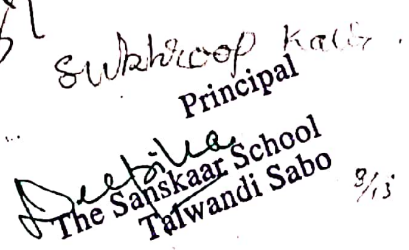 Sukhroop Kaur
Principal
Deepika
The Sanskaar School
Talwandi Sabo